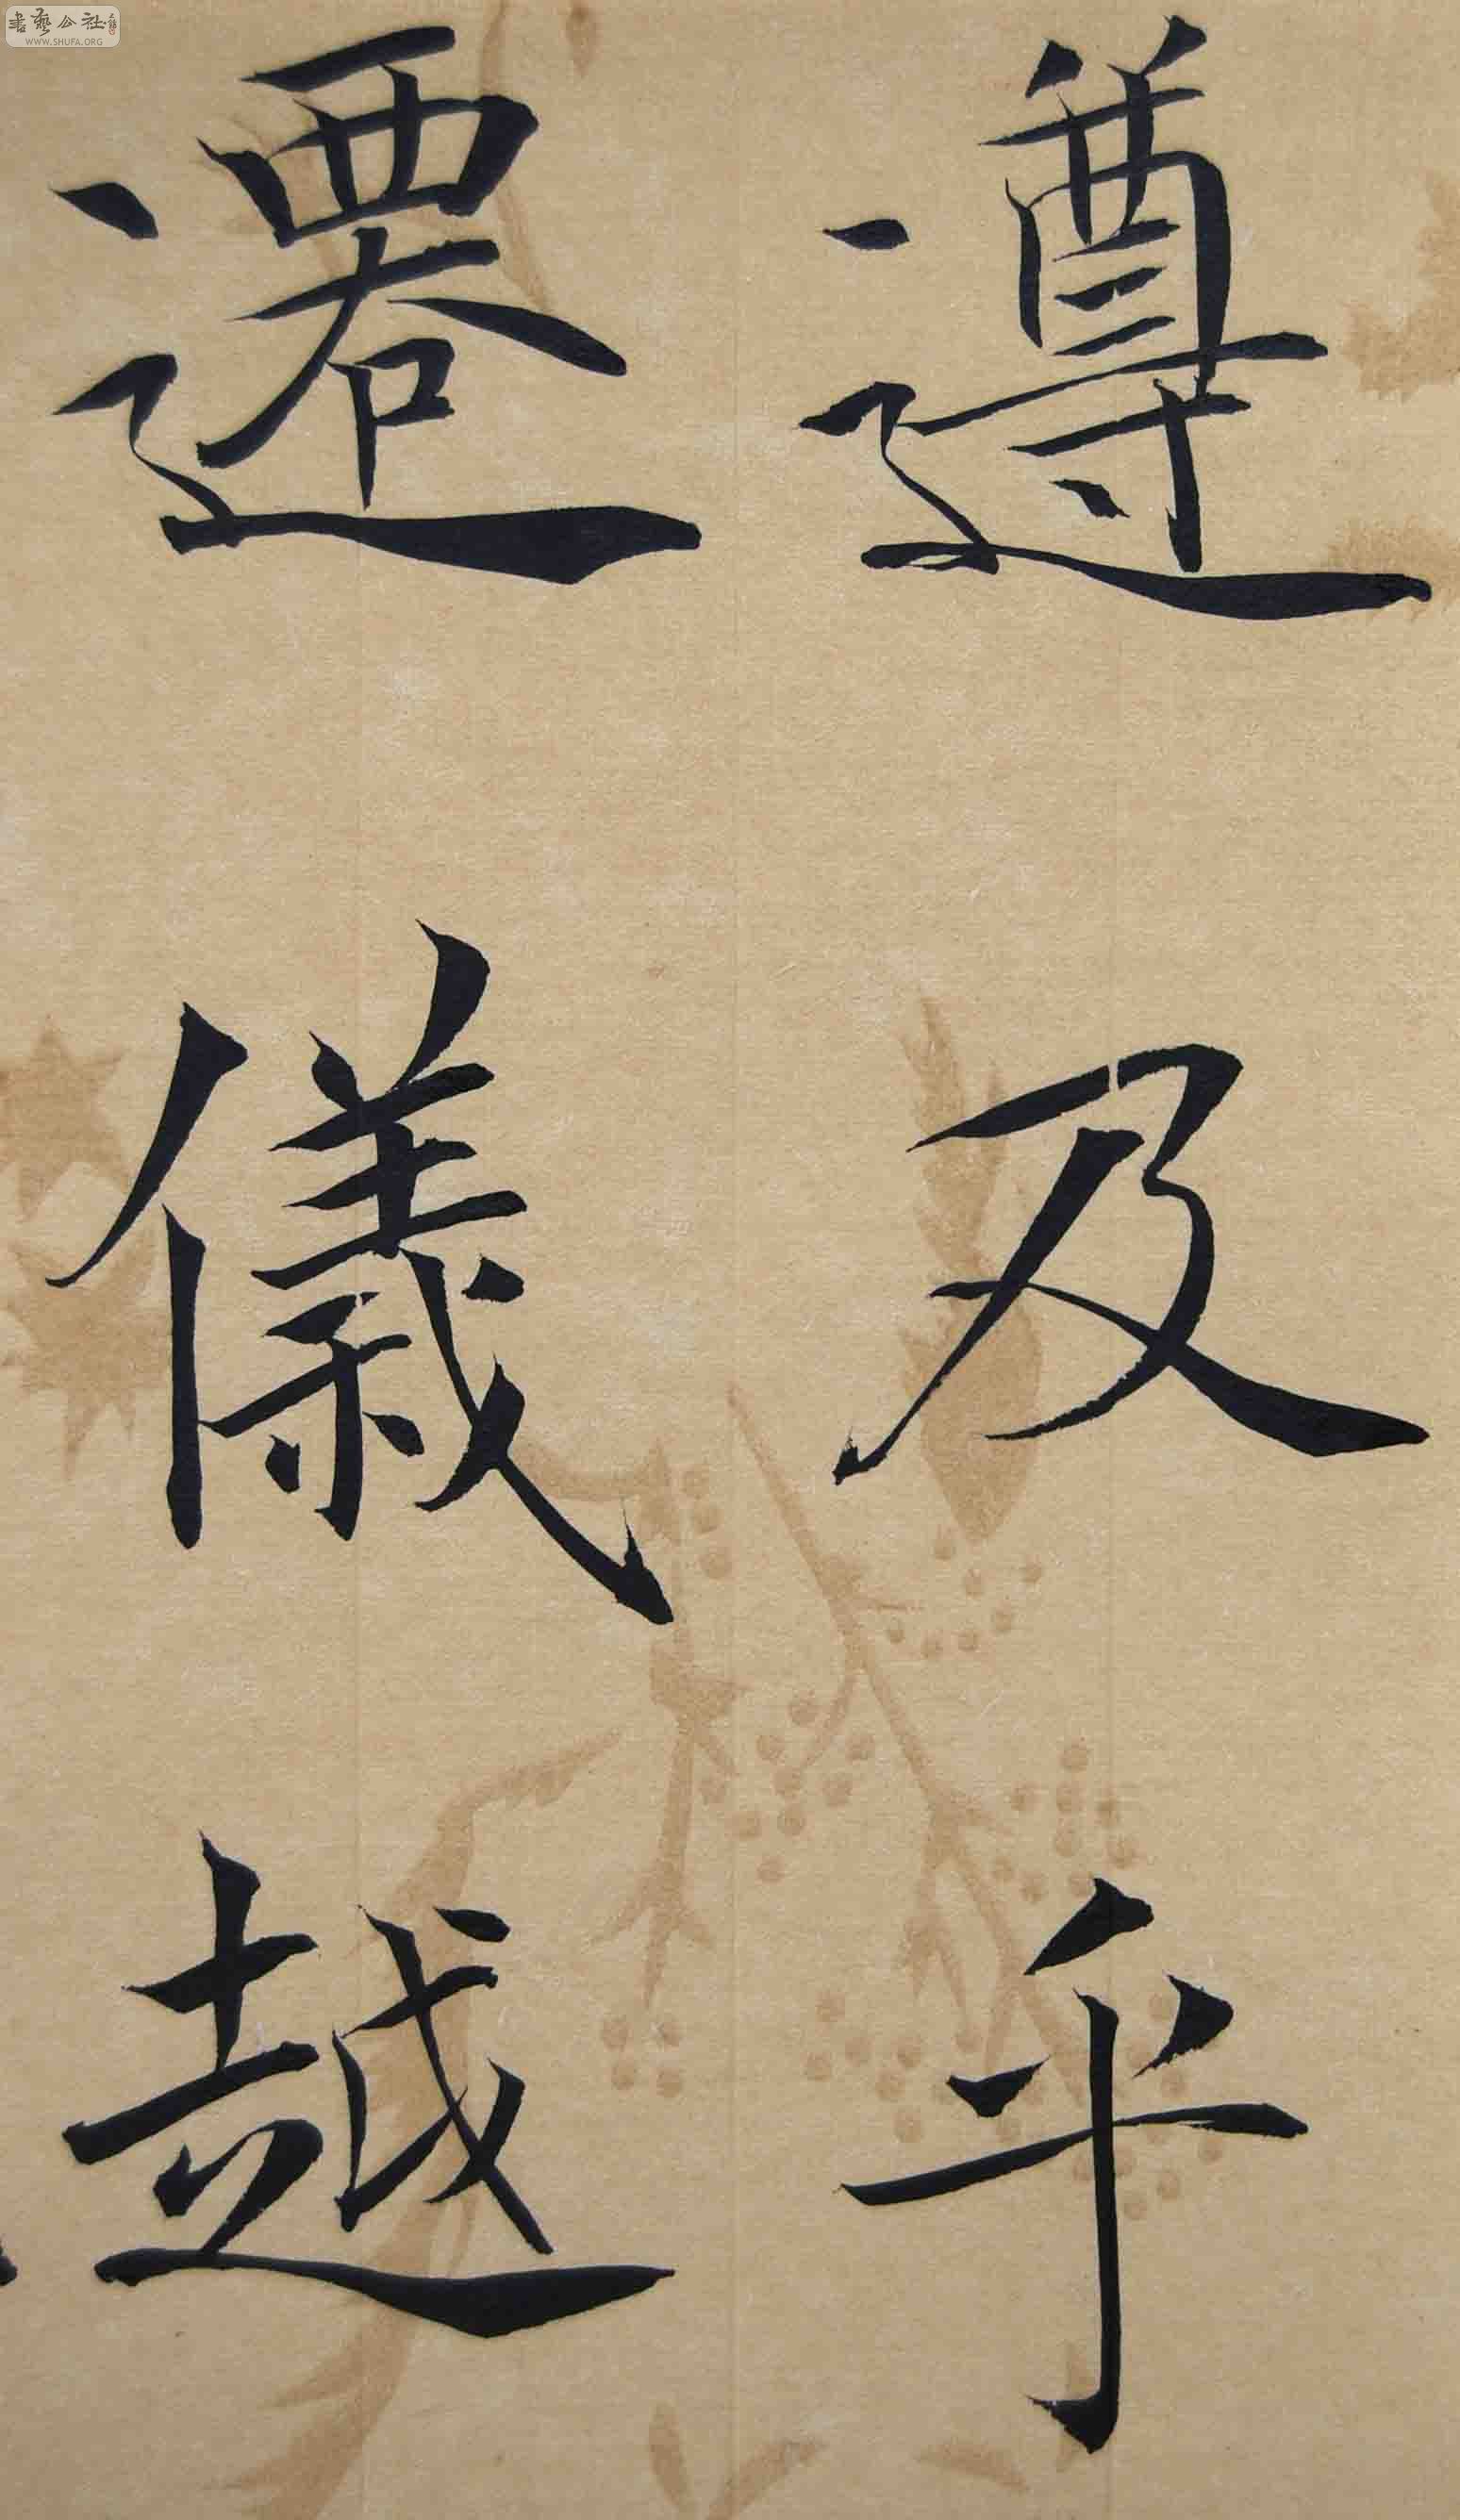 遵及乎
遷儀越
書藝公社
WWW.SHUFA.ORG